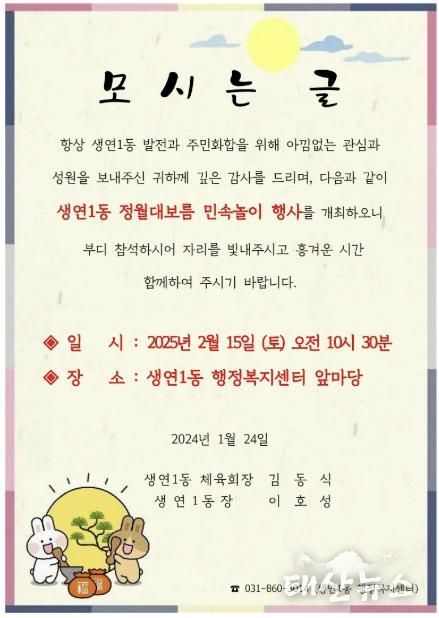 모 시 는 글
항상 생연1동 발전과 주민화합을 위해 아낌없는 관심과
성원을 보내주신 귀하께 깊은 감사를 드리며, 다음과 같이
생연1동 정월대보름 민속놀이 행사를 개최하오니
부디 참석하시어 자리를 빛내주시고 흥겨운 시간
함께하여 주시기 바랍니다.
◈ 일 시 : 2025년 2월 15일 (토) 오전 10시 30분
◈ 장 소 : 생연1동 행정복지센터 앞마당
2024년 1월 24일
생연1동 체육회장 김 동 식
생 연 1 동 장 이 호 성
福
☎ 031-860- 행정복지센터)
태산뉴스